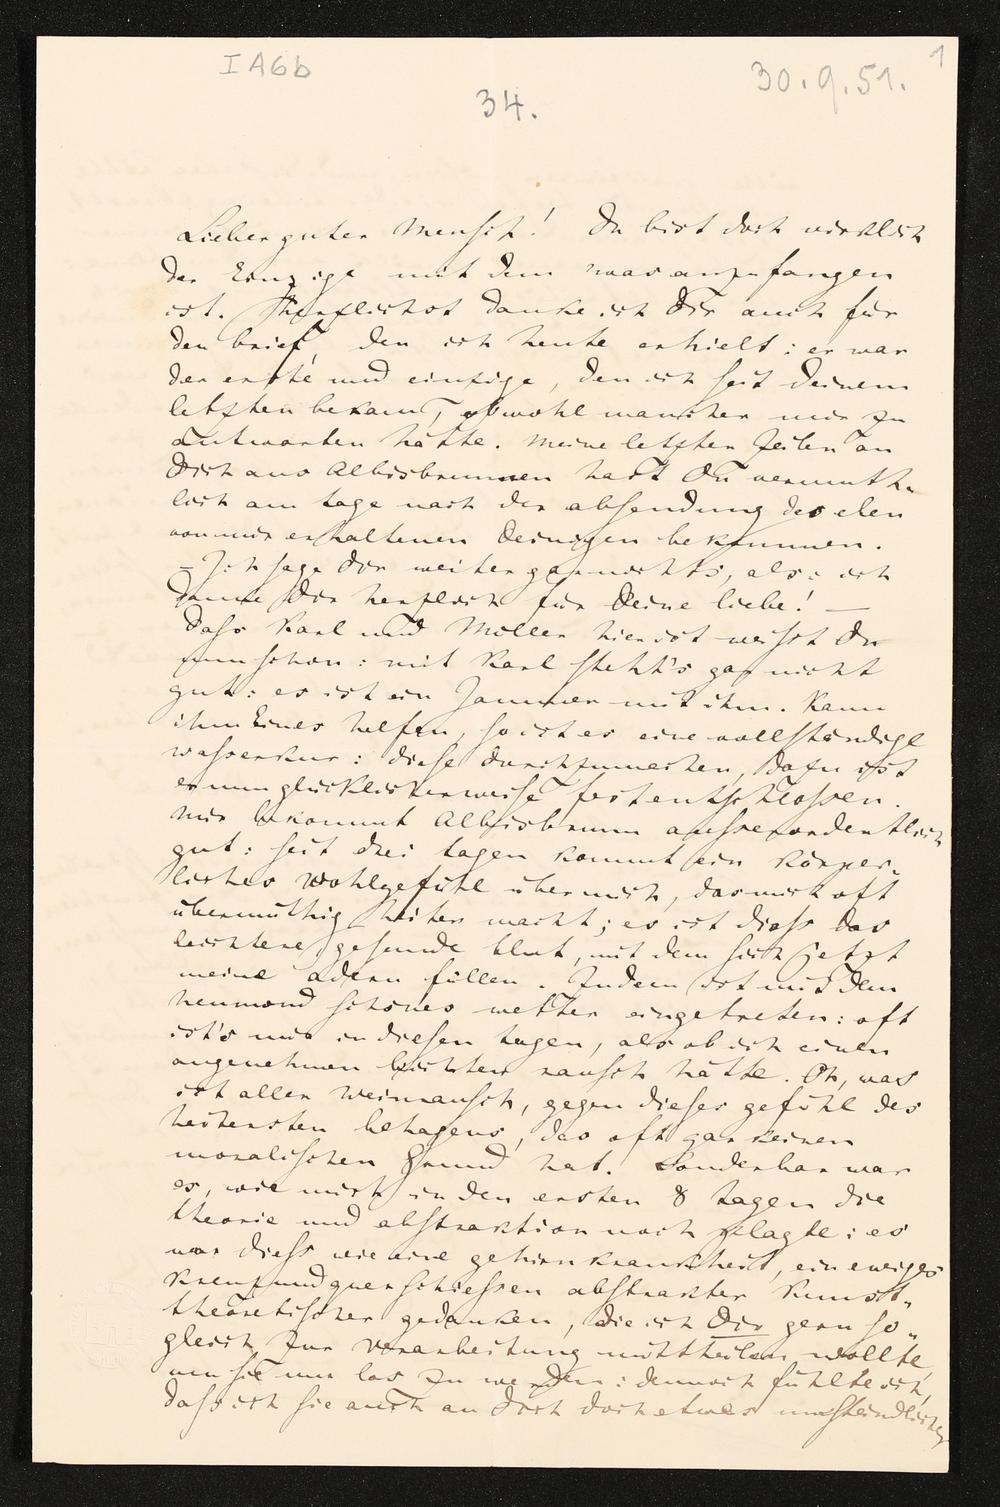 I A6b
34.
30.9.51.
1
Lieber guter Mensch! Du bist doch wirklich
der Einzige mit dem was anzufangen
ist. Herzlichst danke ich Dir auch für
den brief, den ich heute erhielt: er war
der erste und einzige, den ich seit Deinem
letzten bekam, obwohl mancher mir zu
antworten hätte. Meine letzten Zeilen an
Dich aus Albisbrunnen hast Du vermuth„
lich am tage nach der absendung des eben
von mir erhaltenen Deinigen bekommen.
– Ich sage Dir weiter gar nichts, als: ich
danke Dir herzlich für Deine liebe! —
Dass Karl und Müller hier ist weisst Du
nun schon: mit Karl steht's gar nicht
gut: es ist ein Jammer mit ihm. Kann
ihm Eines helfen, so ist es eine vollständige
wasserkur: diese durchzumachen, dazu ist
er nun glücklicherweise fest entschlossen.
Mir bekommt Albisbrunn ausserordentlich
gut: seit drei tagen kommt ein körper„
liches Wohlgefühl über mich, das mich oft
übermüthig heiter macht; es ist diess das
leichtere, gesunde blut, mit dem sich jetzt
meine adern füllen. Zudem ist mit dem
neumond schönes wetter eingetreten: oft
ist's mir in diesen tagen, als ob ich einen
angenehmen leichten rausch hätte. Oh, was
ist aller Weinrausch, gegen dieses gefühl des
heitersten behagens, das oft gar keinen
moralischen Grund hat! Sonderbar war
es, wie mich in den ersten 8 tagen die
theorie und abstraktion noch plagte: es
war diess wie eine gehirnkrankheit, ein ewiges
kreuz und querschiessen abstrakter kunst„
theoretischer gedanken, die ich Dir gern so„
gleich zur verarbeitung mittheilen wollte,
um sie nur los zu werden: dennoch fühlte ich,
dass ich sie auch an Dich doch etwas umständlicher